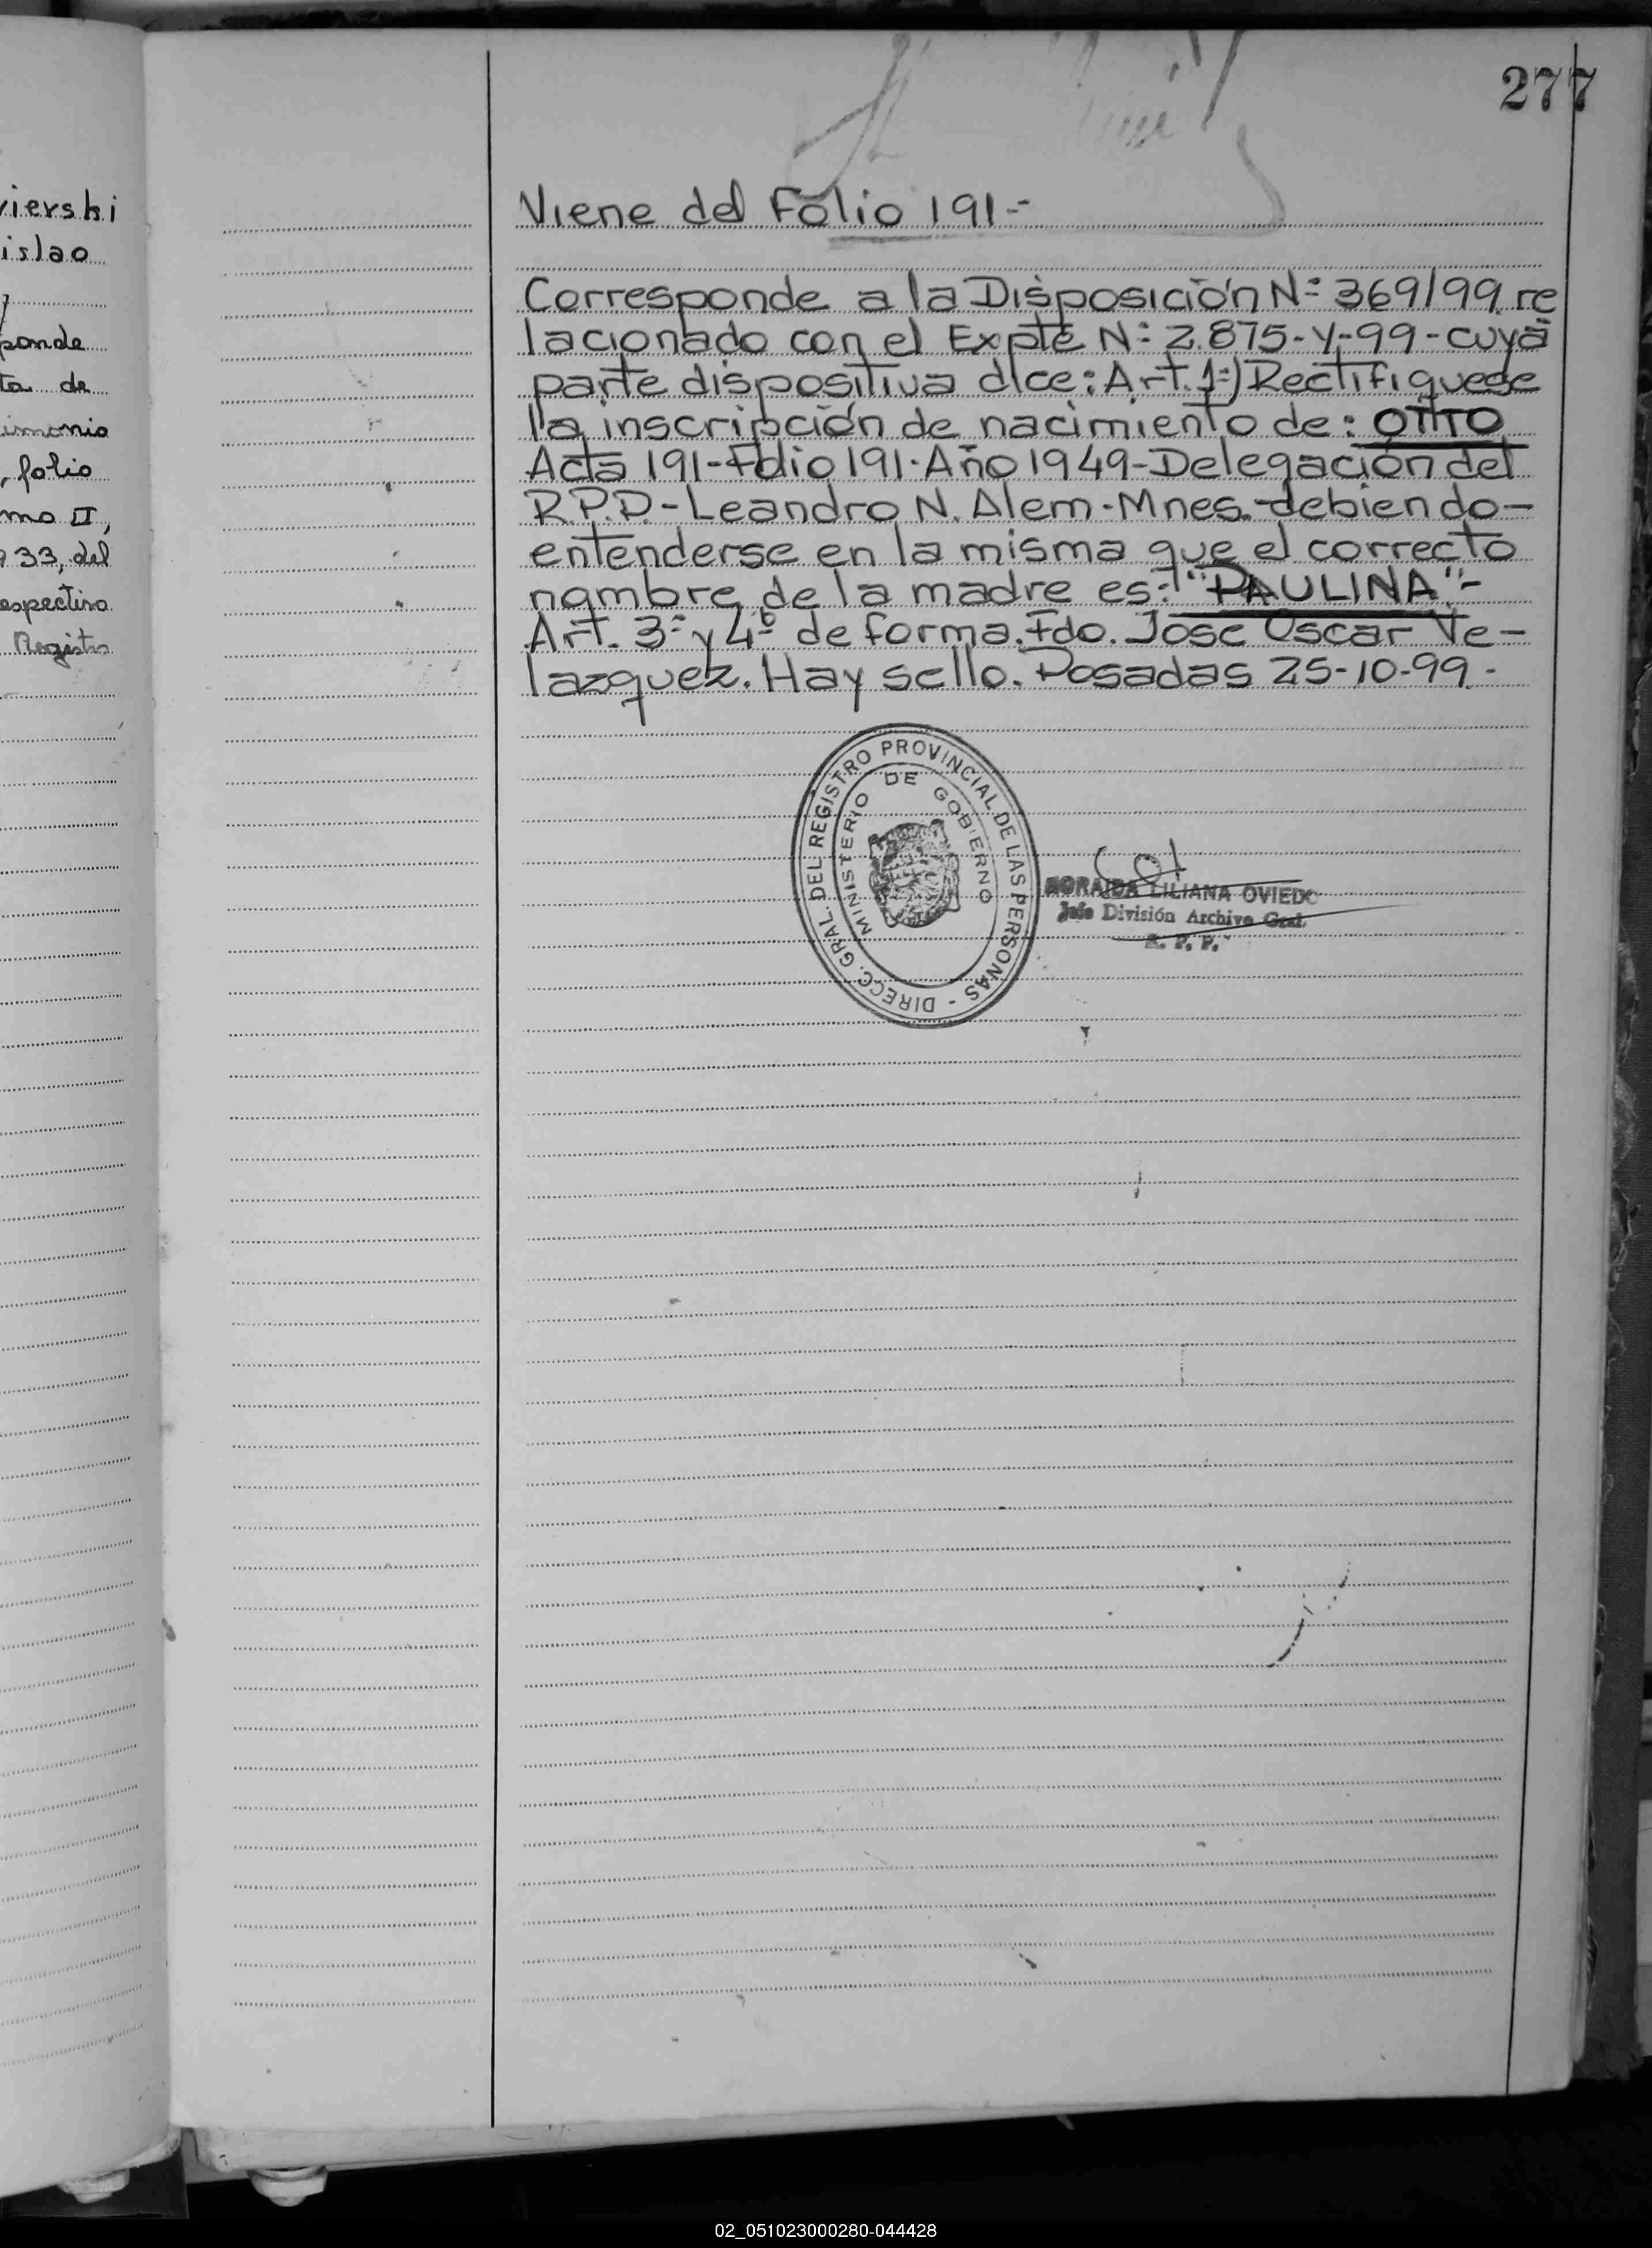 vierski
islao
ponde
ta de
imonio
, folio
mo II,
933, del
espectivo
Registro
277
Viene del Folio 191.-
Corresponde a la Disposición N=369/99 re
lacionado con el Expte N= 2.875-Y-99-cuya
parte dispositiva dice: Art. 1=) Rectifiquese
la inscripción de nacimiento de: OTTO
Acta 191-Folio 191-Año 1949-Delegación del
R.P.P.-Leandro N. Alem-Mnes.-debiendo-
entenderse en la misma que el correcto
nombre de la madre es: "PAULINA"-
Art. 3= y 4= de forma. Fdo. Jose Oscar Ve-
lazquez. Hay sello. Posadas 25-10-99.-
DIRECC. GRAL. DEL REGISTRO PROVINCIAL DE LAS PERSONAS -
MINISTERIO DE GOBIERNO
LILIANA OVIEDO
Jefe División Archivo Gral.
R. P. P.
02_051023000280-044428